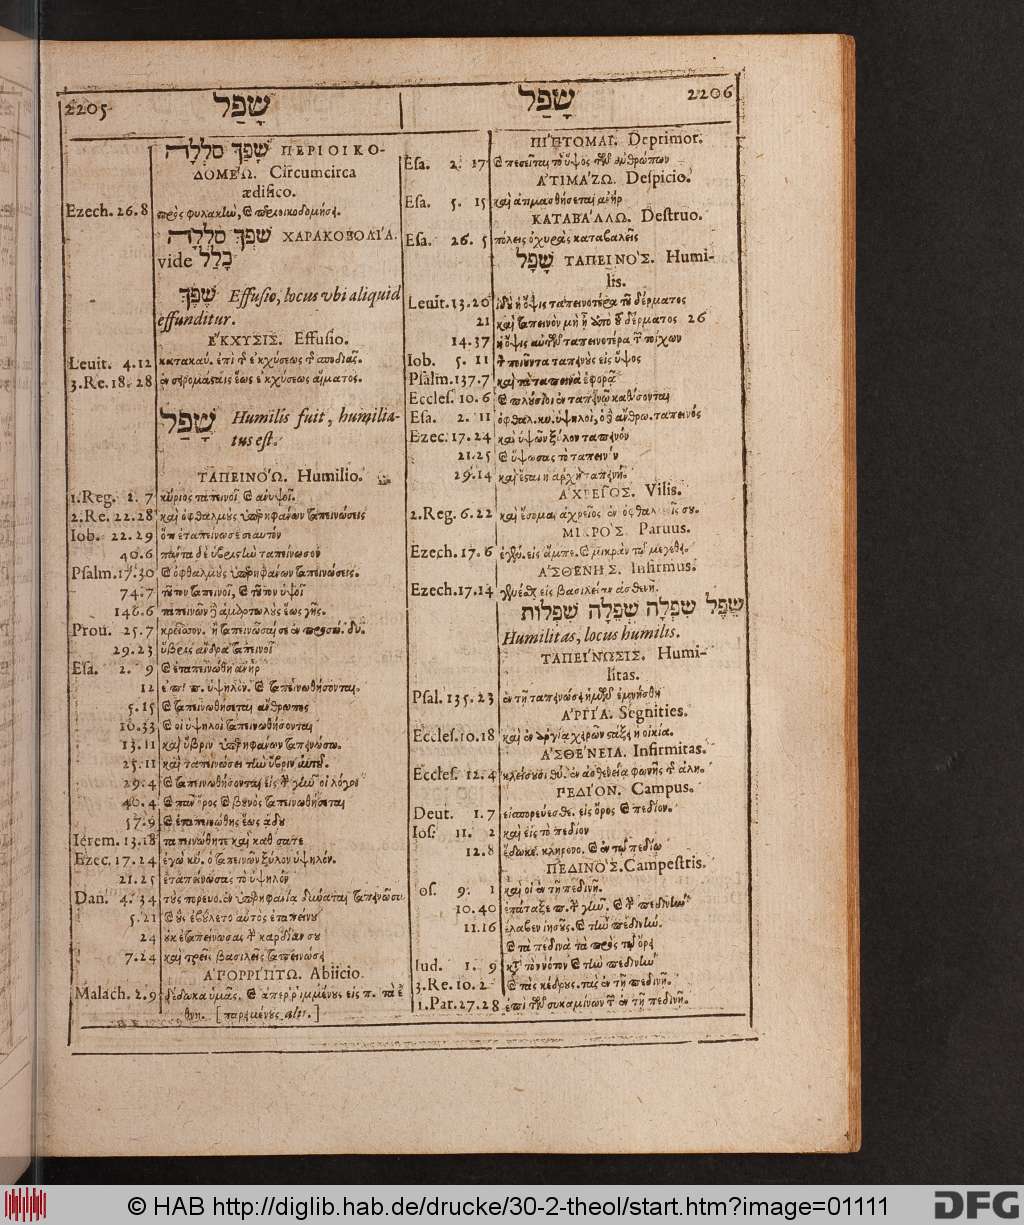 2205 שָׁפַל
שָׁפַל 2206
שָׁפַךְ סֹלְלָה ΠΕΡΙΟΙΚΟ-
ΔΟΜΕΏ. Circumcirca
ædifico.
Ezech. 26.8 πρὸς φυλακὴν, καὶ περιοικοδομήσ.
שָׁפַךְ סֹלְלָה ΧΑΡΑΚΟΒΟΛΊΑ.
vide כָּלַל
שֶׁפֶךְ Effusio, locus vbi aliquid
effunditur.
ἜΚΧΥΣΙΣ. Effusio.
Leuit. 4.12 κατακαύ. ἐπὶ τῆς ἐκχύσεως τῆς σποδιᾶς.
3.Re. 18.28 ἐν σειρομάσταις ἕως ἐκχύσεως αἵματος.
שָׁפַל Humilis fuit, humilia-
tus est.
ΤΑΠΕΙΝΌΩ. Humilio.
1.Reg. 2.7 κύριος ταπεινοῖ καὶ ἀνυψοῖ.
2.Re. 22.28 καὶ ὀφθαλμοὺς ὑπερηφάνων ταπεινώσεις
Iob. 22.29 ὅτι ἐταπείνωσε σεαυτόν
40.6 πάντα δὲ ὑβριστὴν ταπείνωσον
Psalm. 17.30 καὶ ὀφθαλμοὺς ὑπερηφάνων ταπεινώσεις.
74.7 τοῦτον ταπεινοῖ, καὶ τοῦτον ὑψοῖ
146.6 ταπεινῶν δὲ ἁμαρτωλοὺς ἕως γῆς.
Prou. 25.7 κρεῖσσον. ἢ ταπεινῶσαί σε ἐν προσώ. δυ.
29.23 ὕβρις ἄνδρα ταπεινοῖ
Esa. 2. 9 καὶ ἐταπεινώθη ἀνὴρ
12 ἐπὶ π. ὑψηλὸν. καὶ ταπεινωθήσονται.
5.15 καὶ ταπεινωθήσεται ἄνθρωπος
10.33 καὶ οἱ ὑψηλοὶ ταπεινωθήσονται
13.11 καὶ ὕβριν ὑπερηφάνων ταπεινώσω.
25.11 καὶ ταπεινώσει τὴν ὕβριν αὐτοῦ.
29.4 καὶ ταπεινωθήσονται εἰς τὴν γῆν οἱ λόγοι
40.4 καὶ πᾶν ὄρος καὶ βουνὸς ταπεινωθήσεται
57.9 καὶ ἐταπεινώθης ἕως ᾅδου
Ierem. 13.18 ταπεινώθητε καὶ καθίσατε
Ezec. 17.24 ἐγὼ κύ. ὁ ταπεινῶν ξύλον ὑψηλόν.
21.25 ἐταπείνωσας τὸ ὑψηλόν
Dan. 4.34 τοὺς πορευο. ἐν ὑπερηφανίᾳ δύναται ταπεινῶσαι
5.21 καὶ οὓς ἐβούλετο αὐτὸς ἐταπείνου
24 οὐκ ἐταπείνωσας τὴν καρδίαν σου
7.24 καὶ τρεῖς βασιλεῖς ταπεινώσει
ἈΠΟΡΡΊΠΤΩ. Abiicio.
Malach. 2.9 δέδωκα ὑμᾶς, καὶ ἀπερριμμένους εἰς π. τὰ ἔ
θνη. [παρειμένους alii.]
ΠΊΠΤΟΜΑΙ. Deprimor.
Esa. 2. 17 καὶ πεσεῖται τὸ ὕψος τῶν ἀνθρώπων
ἈΤΙΜΆΖΩ. Despicio.
Esa. 5. 15 καὶ ἀτιμασθήσεται ἀνὴρ
ΚΑΤΑΒΆΛΛΩ. Destruo.
Esa. 26. 5 πόλεις ὀχυρὰς καταβαλεῖς
שָׁפָל ΤΑΠΕΙΝΌΣ. Humi-
lis.
Leuit. 13.20 ἰδοὺ ἡ ὄψις ταπεινοτέρα τοῦ δέρματος
21 καὶ ταπεινὸν μὴ ᾖ ἀπὸ τοῦ δέρματος 26
14.37 ἡ ὄψις αὐτῶν ταπεινοτέρα τῶν τοίχων
Iob. 5. 11 τὸν ποιοῦντα ταπεινοὺς εἰς ὕψος
Psalm. 137.7 καὶ τὰ ταπεινὰ ἐφορᾷ
Eccles. 10.6 καὶ πλούσιοι ἐν ταπεινῷ καθίσονται
Esa. 2. 11 ὀφθαλ. κυ. ὑψηλοὶ, ὁ δὲ ἄνθρω. ταπεινός
Ezec. 17.24 καὶ ὑψῶν ξύλον ταπεινόν
21.25 καὶ ὕψωσας τὸ ταπεινόν
29.14 καὶ ἔσται ἡ ἀρχὴ ταπεινή.
ἈΧΡΕῖΟΣ. Vilis.
2.Reg. 6.22 καὶ ἔσομαι ἀχρεῖος ἐν ὀφθαλμοῖς σου.
ΜΙΚΡΌΣ. Paruus.
Ezech. 17.6 ἐγένε. εἰς ἄμπε. καὶ μικρὰν τῷ μεγέθει.
ἈΣΘΕΝΉΣ. Infirmus.
Ezech. 17.14 γενέσθαι εἰς βασιλείαν ἀσθενῆ.
שֵׁפֶל שִׁפְלָה שְׁפֵלָה שִׁפְלוּת
Humilitas, locus humilis.
ΤΑΠΕΊΝΩΣΙΣ. Humi-
litas.
Psal. 135.23 ἐν τῇ ταπεινώσει ἡμῶν ἐμνήσθη
ἈΡΓΊΑ. Segnities.
Eccles. 10.18 καὶ ἐν ἀργίᾳ χειρῶν στάξει ἡ οἰκία.
ἈΣΘΈΝΕΙΑ. Infirmitas.
Eccles. 12.4 κλείσουσι θύ. ἐν ἀσθενείᾳ φωνῆς τῆς ἀλη.
ΠΕΔΊΟΝ. Campus.
Deut. 1. 7 εἰσπορεύεσθε. εἰς ὄρος καὶ πεδίον.
Ios. 11. 2 καὶ εἰς τὸ πεδίον
12.8 ἔδωκε. κληρονο. καὶ ἐν τῷ πεδίῳ
ΠΕΔΙΝΌΣ. Campestris.
os. 9. 1 καὶ οἱ ἐν τῇ πεδινῇ.
10.40 ἐπάταξε π. τὴν γῆν. καὶ τὴν πεδινὴν
11.16 ἔλαβεν ἰησοῦς. καὶ τὴν πεδινήν.
καὶ τὰ πεδινὰ τὰ πρὸς τῷ ὄρει
Iud. 1. 9 κατὰ τὸν νότον καὶ τὴν πεδινὴν
3.Re. 10.2 καὶ τὰς κέδρους. τὰς ἐν τῇ πεδινῇ.
1.Par. 27.28 ἐπὶ τῶν συκαμίνων τῶν ἐν τῇ πεδινῇ.
© HAB http://diglib.hab.de/drucke/30-2-theol/start.htm?image=01111
DFG